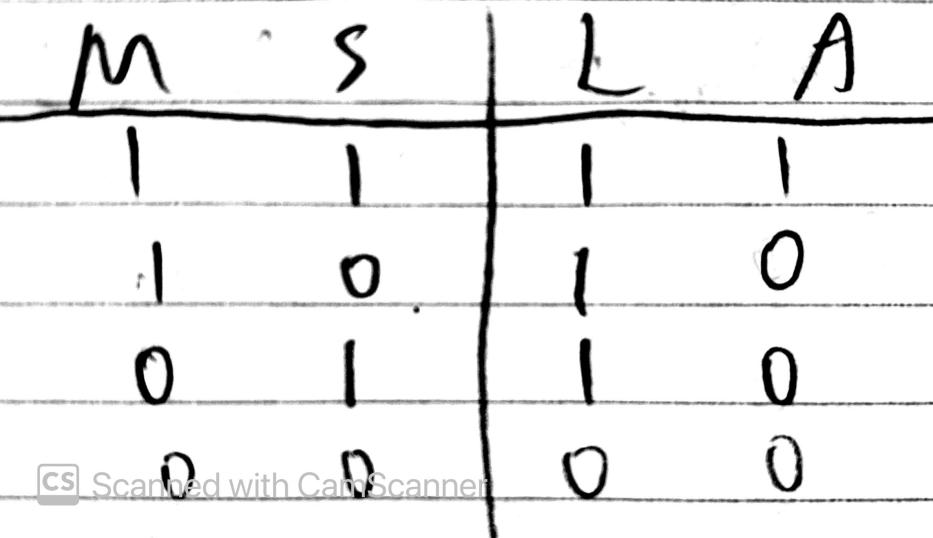 M S L A
1 1 1 1
1 0 1 0
0 1 1 0
0 0 0 0
CS Scanned with CamScanner